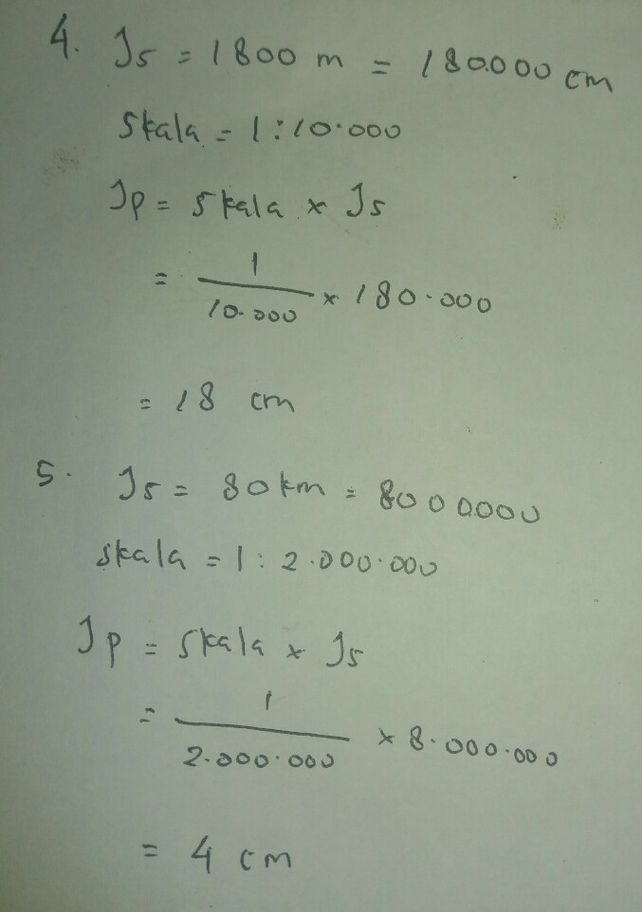 4. Js = 1800 m = 180.000 cm
Skala = 1 : 10.000
Jp = Skala x Js
= 1/10.000 x 180.000
= 18 cm
5. Js = 80 km = 8000.000
skala = 1 : 2.000.000
Jp = Skala x Js
= 1/2.000.000 x 8.000.000
= 4 cm